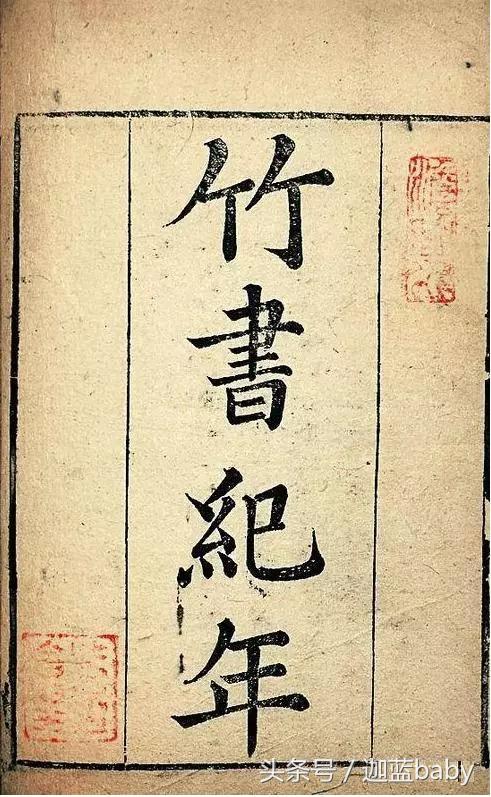 竹書紀年
头条号 / 迦蓝baby